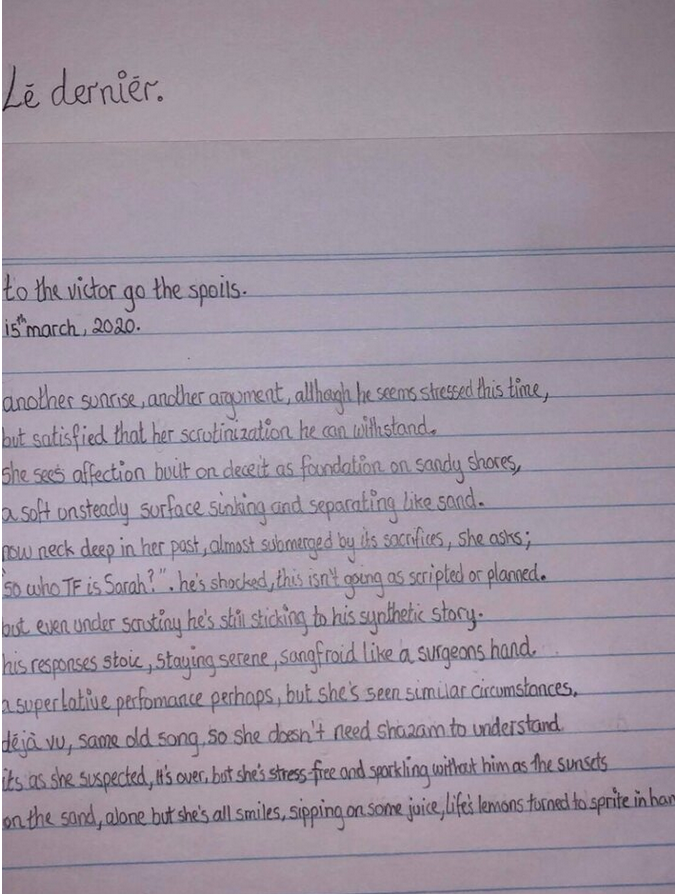 Lē derniēr.
to the victor go the spoils.
15th march, 2020.
another sunrise, another argument, although he seems stressed this time,
but satisfied that her scrutinization he can withstand.
she sees affection built on deceit as foundation on sandy shores,
a soft unsteady surface sinking and separating like sand.
now neck deep in her past, almost submerged by its sacrifices, she asks;
"so who TF is Sarah?". he's shocked, this isn't going as scripted or planned.
but even under scrutiny he's still sticking to his synthetic story.
his responses stoic, staying serene, sangfroid like a surgeons hand.
a superlative perfomance perhaps, but she's seen similar circumstances,
déjà vu, same old song, so she doesn't need shazam to understand
its as she suspected, it's over, but she's stress-free and sparkling without him as the sunsets
on the sand, alone but she's all smiles, sipping on some juice, life's lemons turned to sprite in han